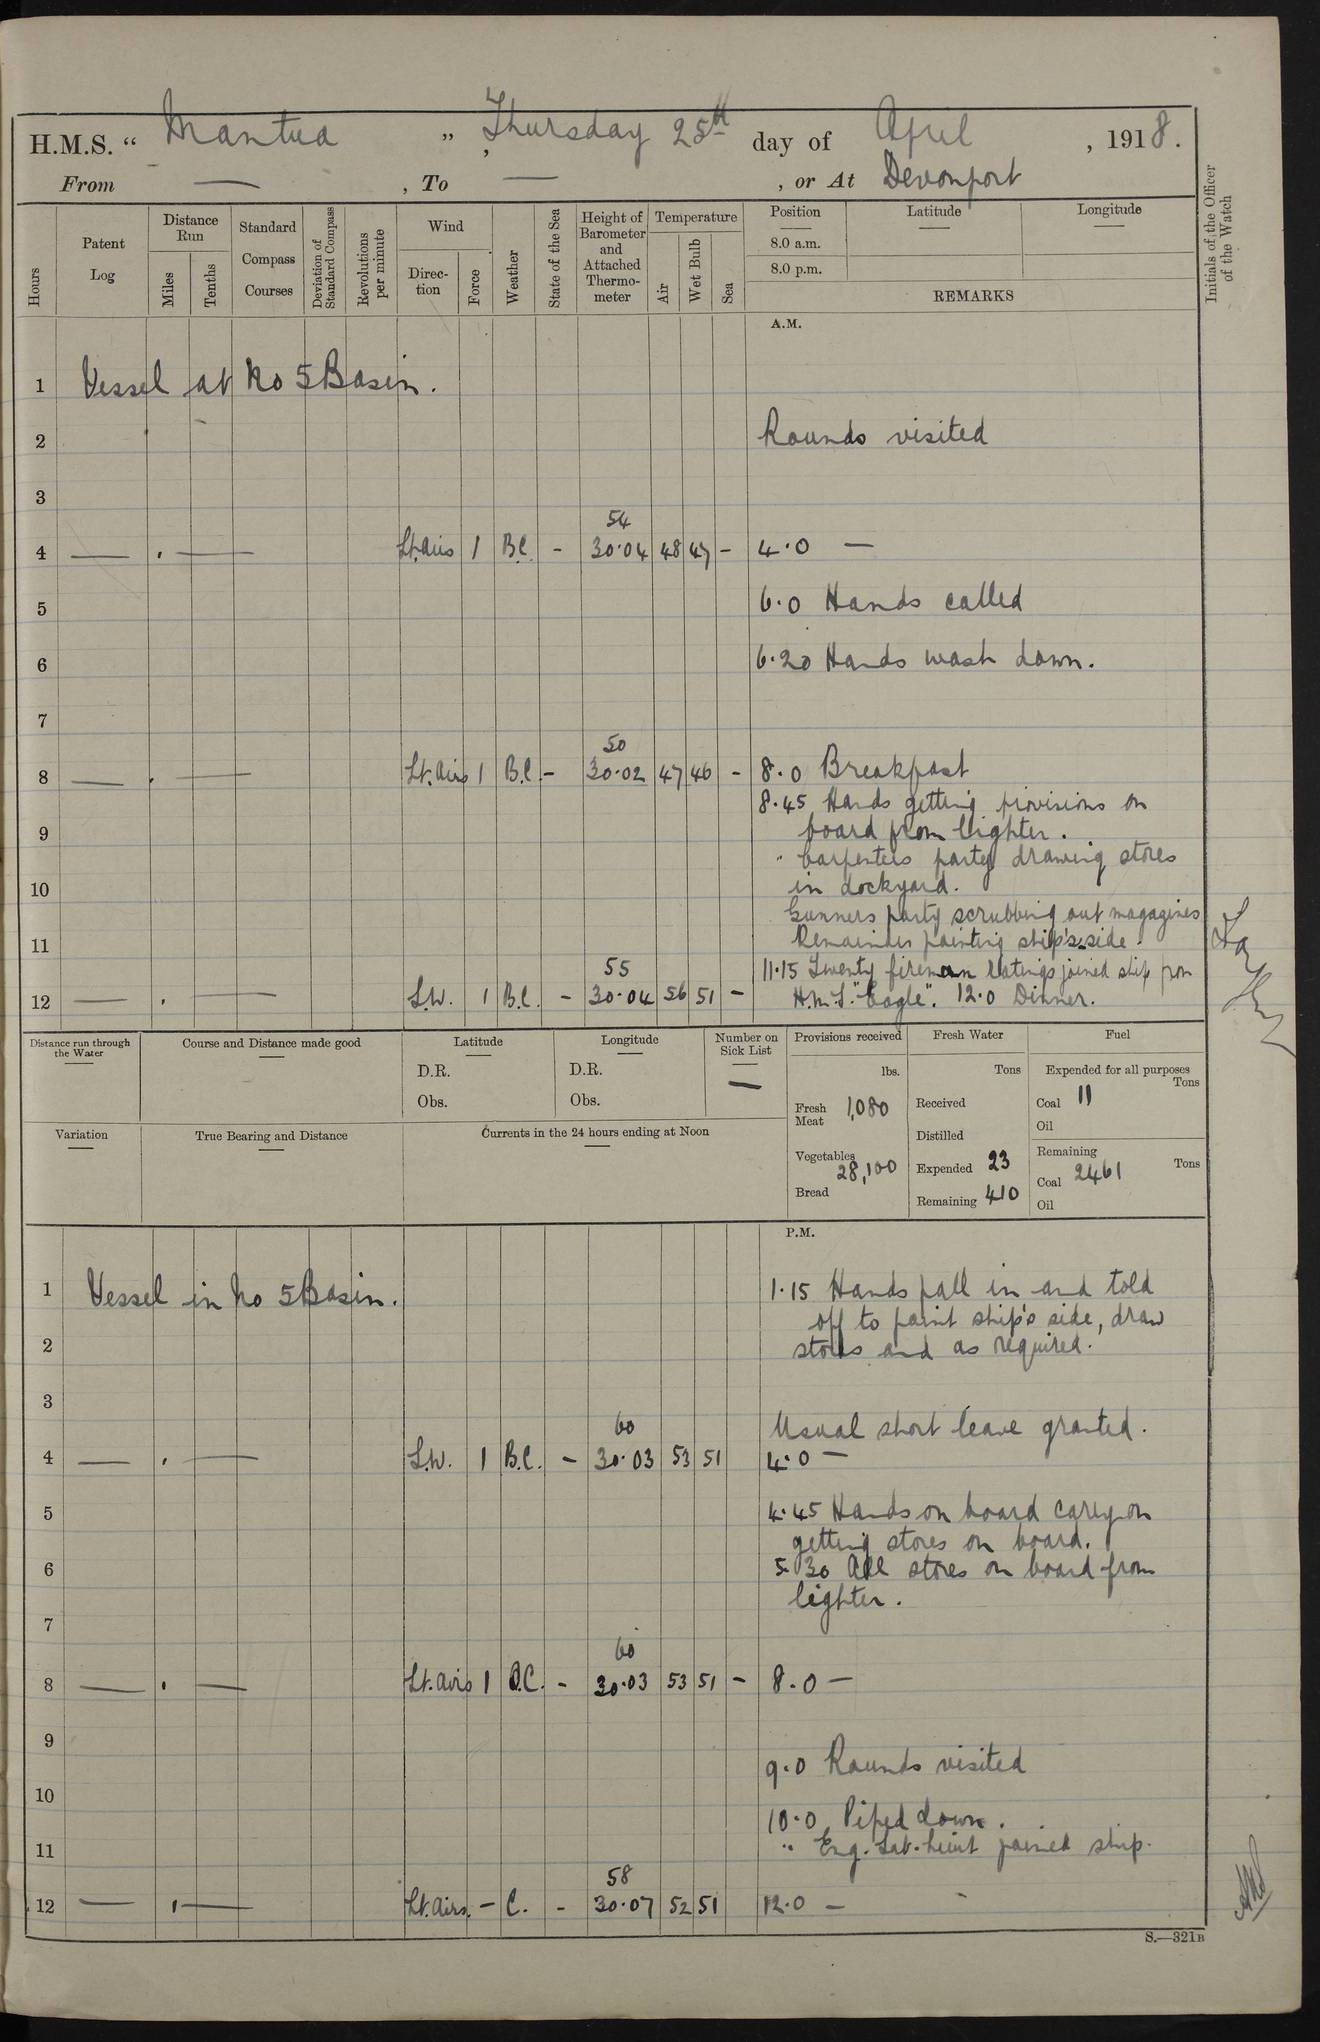 H.M.S. “ Mantua ”, Thursday 25th day of April, 1918.
From — , To — , or At Devonport
Hours
Patent Log
Distance Run
Miles
Tenths
Standard Compass Courses
Deviation of Standard Compass
Revolutions per minute
Wind
Direction
Force
Weather
State of the Sea
Height of Barometer and Attached Thermometer
Temperature
Air
Wet Bulb
Sea
Position
Latitude
Longitude
8.0 a.m.
8.0 p.m.
REMARKS
Initials of the Officer of the Watch
A.M.
1 Vessel at No 5 Basin.
2 Rounds visited
3
54
4 — . — Lt. airs 1 B.C. - 30.04 48 47 - 4.0 —
5 6.0 Hands called
6 6.20 Hands wash down.
7
50
8 — . — Lt. airs 1 B.C. - 30.02 47 46 - 8.0 Breakfast
8.45 Hands getting provisions on
9 board from lighter.
" Carpenters party drawing stores
10 in dockyard.
Gunners party scrubbing out magazines
11 Remainder painting ship's side.
55 11.15 Twenty fireman ratings joined ship from
12 — — S.W. 1 B.C. - 30.04 56 51 - H.M.S. "Eagle". 12.0 Dinner.
Distance run through the Water
Course and Distance made good
Latitude
D.R.
Obs.
Longitude
D.R.
Obs.
Number on Sick List
—
Provisions received
lbs.
Fresh Meat 1,080
Vegetables 28,100
Bread
Fresh Water
Tons
Received
Distilled
Expended 23
Remaining 410
Fuel
Expended for all purposes
Tons
Coal 11
Oil
Remaining
Tons
Coal 2461
Oil
Variation
True Bearing and Distance
Currents in the 24 hours ending at Noon
P.M.
1 Vessel in No 5 Basin. 1.15 Hands fall in and told
off to paint ship's side, draw
2 stores and as required.
3
60 Usual short leave granted.
4 — . — S.W. 1 B.C. - 30.03 53 51 4.0 —
5 4.45 Hands on board carry on
getting stores on board.
6 5.30 All stores on board from
lighter.
7
60
8 — . — Lt. airs 1 B.C. - 30.03 53 51 - 8.0 —
9
9.0 Rounds visited
10
10.0 Piped down.
11 " Eng. Sub. Lieut joined ship.
58
12 — . — Lt. airs. - C. - 30.07 52 51 12.0 —
S.—321B